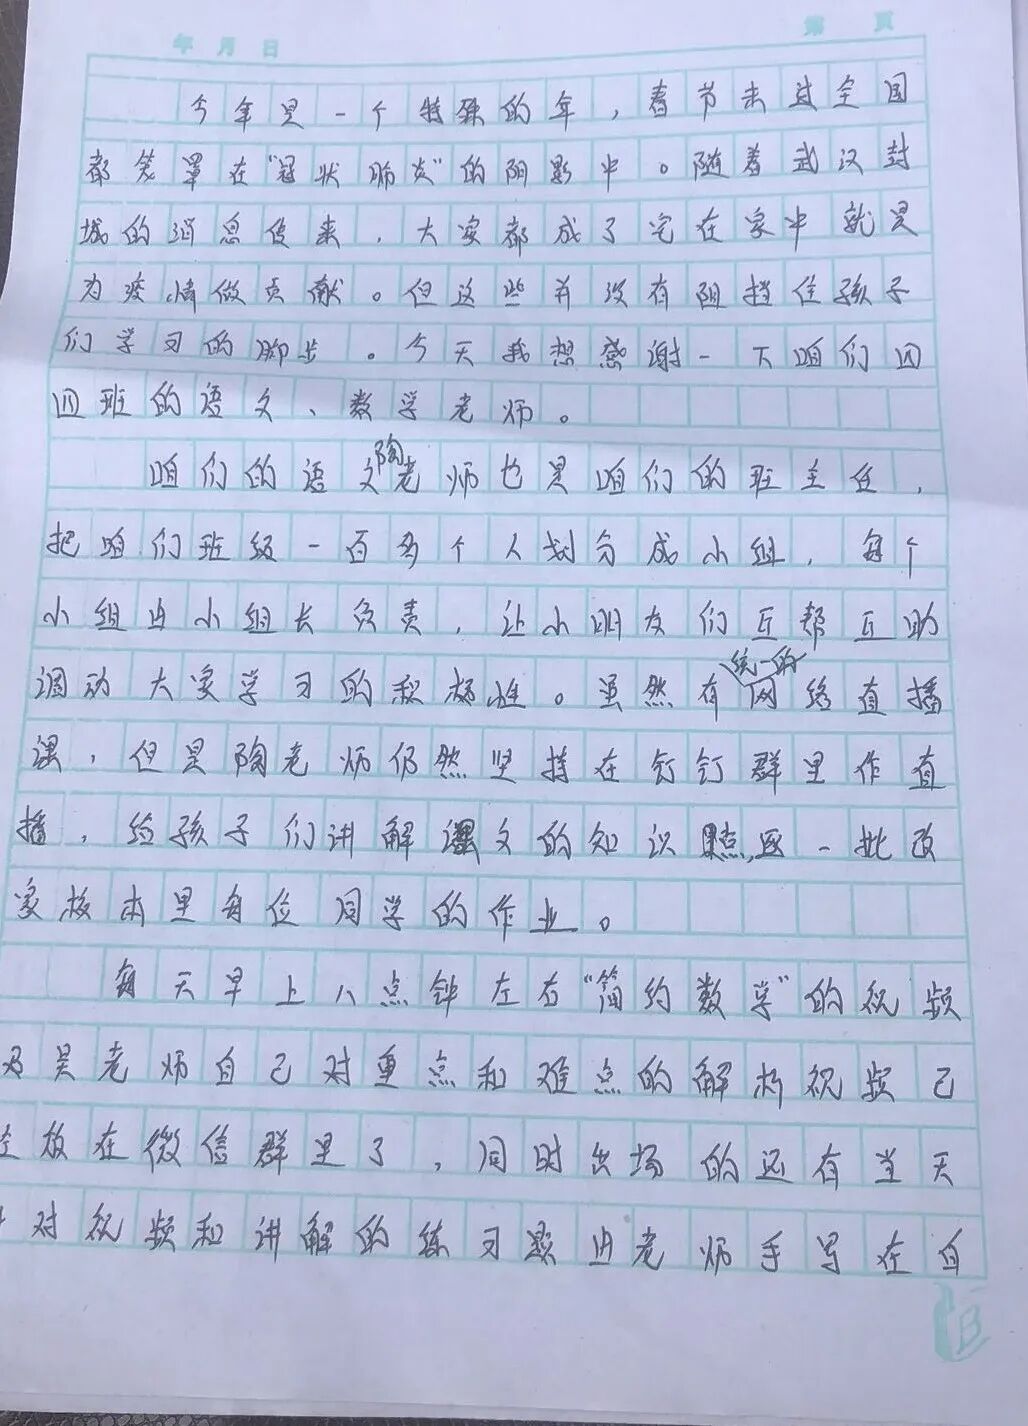 年 月 日 第 页
今年是一个特殊的年，春节未过全国
都笼罩在“冠状肺炎”的阴影中。随着武汉封
城的消息传来，大家都成了宅在家中就是
为疫情做贡献。但这些并没有阻挡住孩子
们学习的脚步。今天我想感谢一下咱们四
四班的语文、数学老师。
咱们的语文陶老师也是咱们的班主任，
把咱们班级一百多个人划分成小组，每个
小组由小组长负责，让小朋友们互帮互助
调动大家学习的积极性。虽然有统一的网络直播
课，但是陶老师仍然坚持在钉钉群里作直
播，给孩子们讲解课文的知识点，逐一批改
家校本里每位同学的作业。
每天早上八点钟左右“简约数学”的视频
及吴老师自己对重点和难点的解析视频已
经放在微信群里了，同时出场的还有当天
对视频和讲解的练习题由老师手写在自